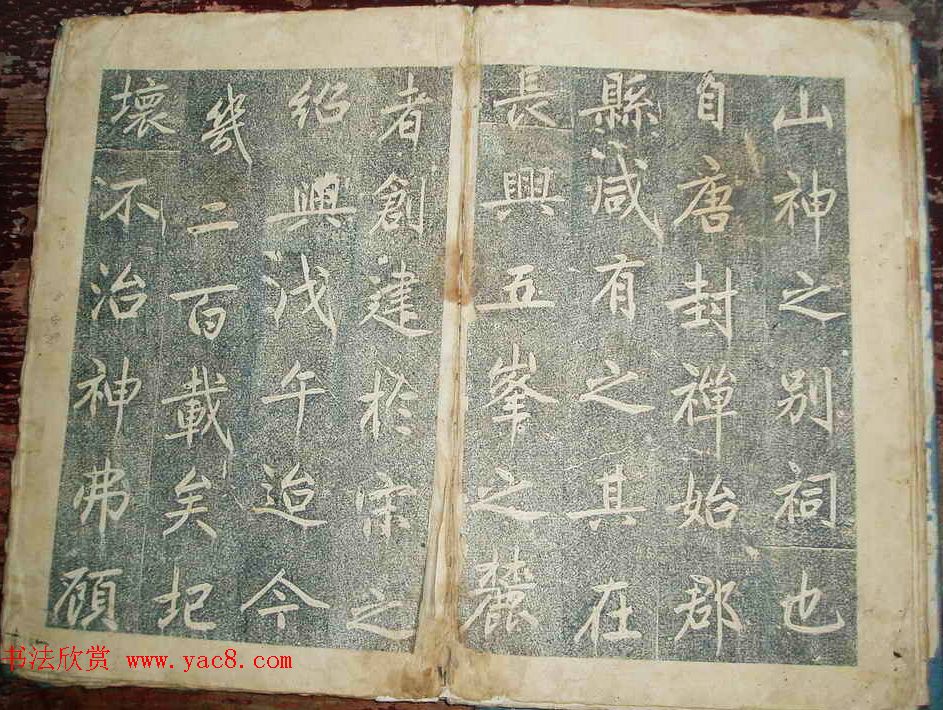 山神之別祠也
自唐封禪始郡
縣咸有之其在
長興五峯之麓
者創建於宋之
紹興戊午迨今
幾二百載矣圮
壞不治神弗顧
书法欣赏 www.yac8.com